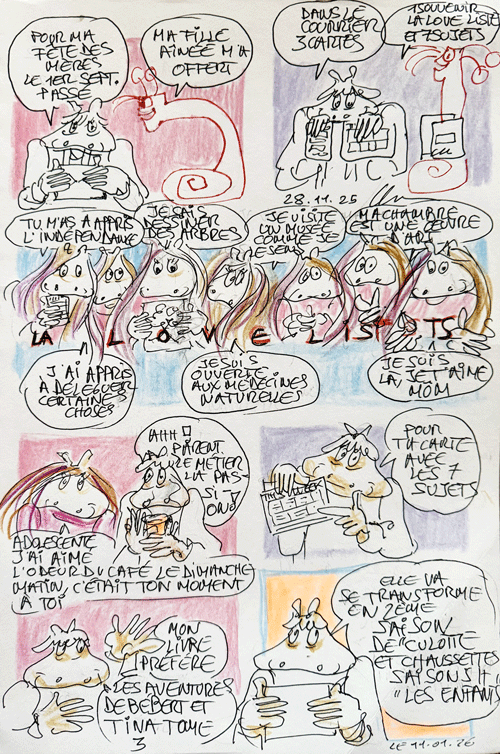 POUR MA
FÊTE DES
MÈRES
LE 1ER SEPT.
PASSÉ
MA FILLE
AINÉE M'A
OFFERT
DANS LE
COURRIER
3 CARTES
1 SOUVENIR
LA LOVE LISTE
ET 7 SUJETS
28.11.25
TU M'AS APPRIS
L'INDÉPENDANCE
JE SAIS
DESSINER
DES ARBRES
JE VISITE
UN MUSÉE
COMME JE
LE SENS
MA CHAMBRE
EST UNE ŒUVRE
D'ART
LA LOVE LIS
J'AI APPRIS
A DÉLÉGUER
CERTAINES
CHOSES
JE SUIS
OUVERTE
AUX MÉDECINES
NATURELLES
JE SUIS
LÀ, JE T'AIME
MÔM
ADOLESCENTE
J'AI AIMÉ
L'ODEUR DU CAFÉ LE DIMANCHE
MATIN, C'ÉTAIT TON MOMENT
À TOI
AHH !
PARENT.
LE MÉTIER
LA PAS-
SI
ON
POUR
TA CARTE
AVEC
LES 7
SUJETS
MON
LIVRE
PRÉFÉRÉ
LES AVENTURES
DE BÉBERT ET
TINA TOME
3
ELLE VA
SE TRANSFORME
EN 2ÈME
SAISON
DE "CULOTTE
ET CHAUSSETTES
SAISONS II
"LES ENFANTS
LE 11.01.26